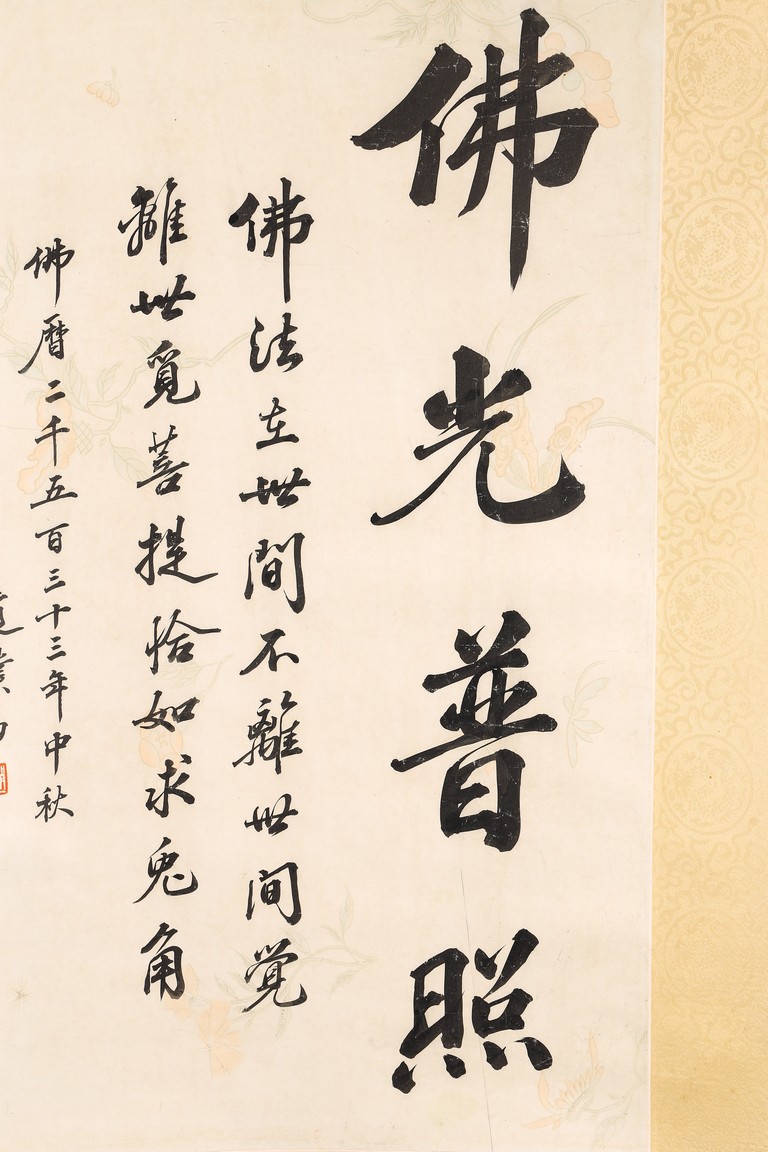 佛光普照
佛法在世間不離世间觉
離世覓菩提恰如求兔角
佛曆二千五百三十三年中秋